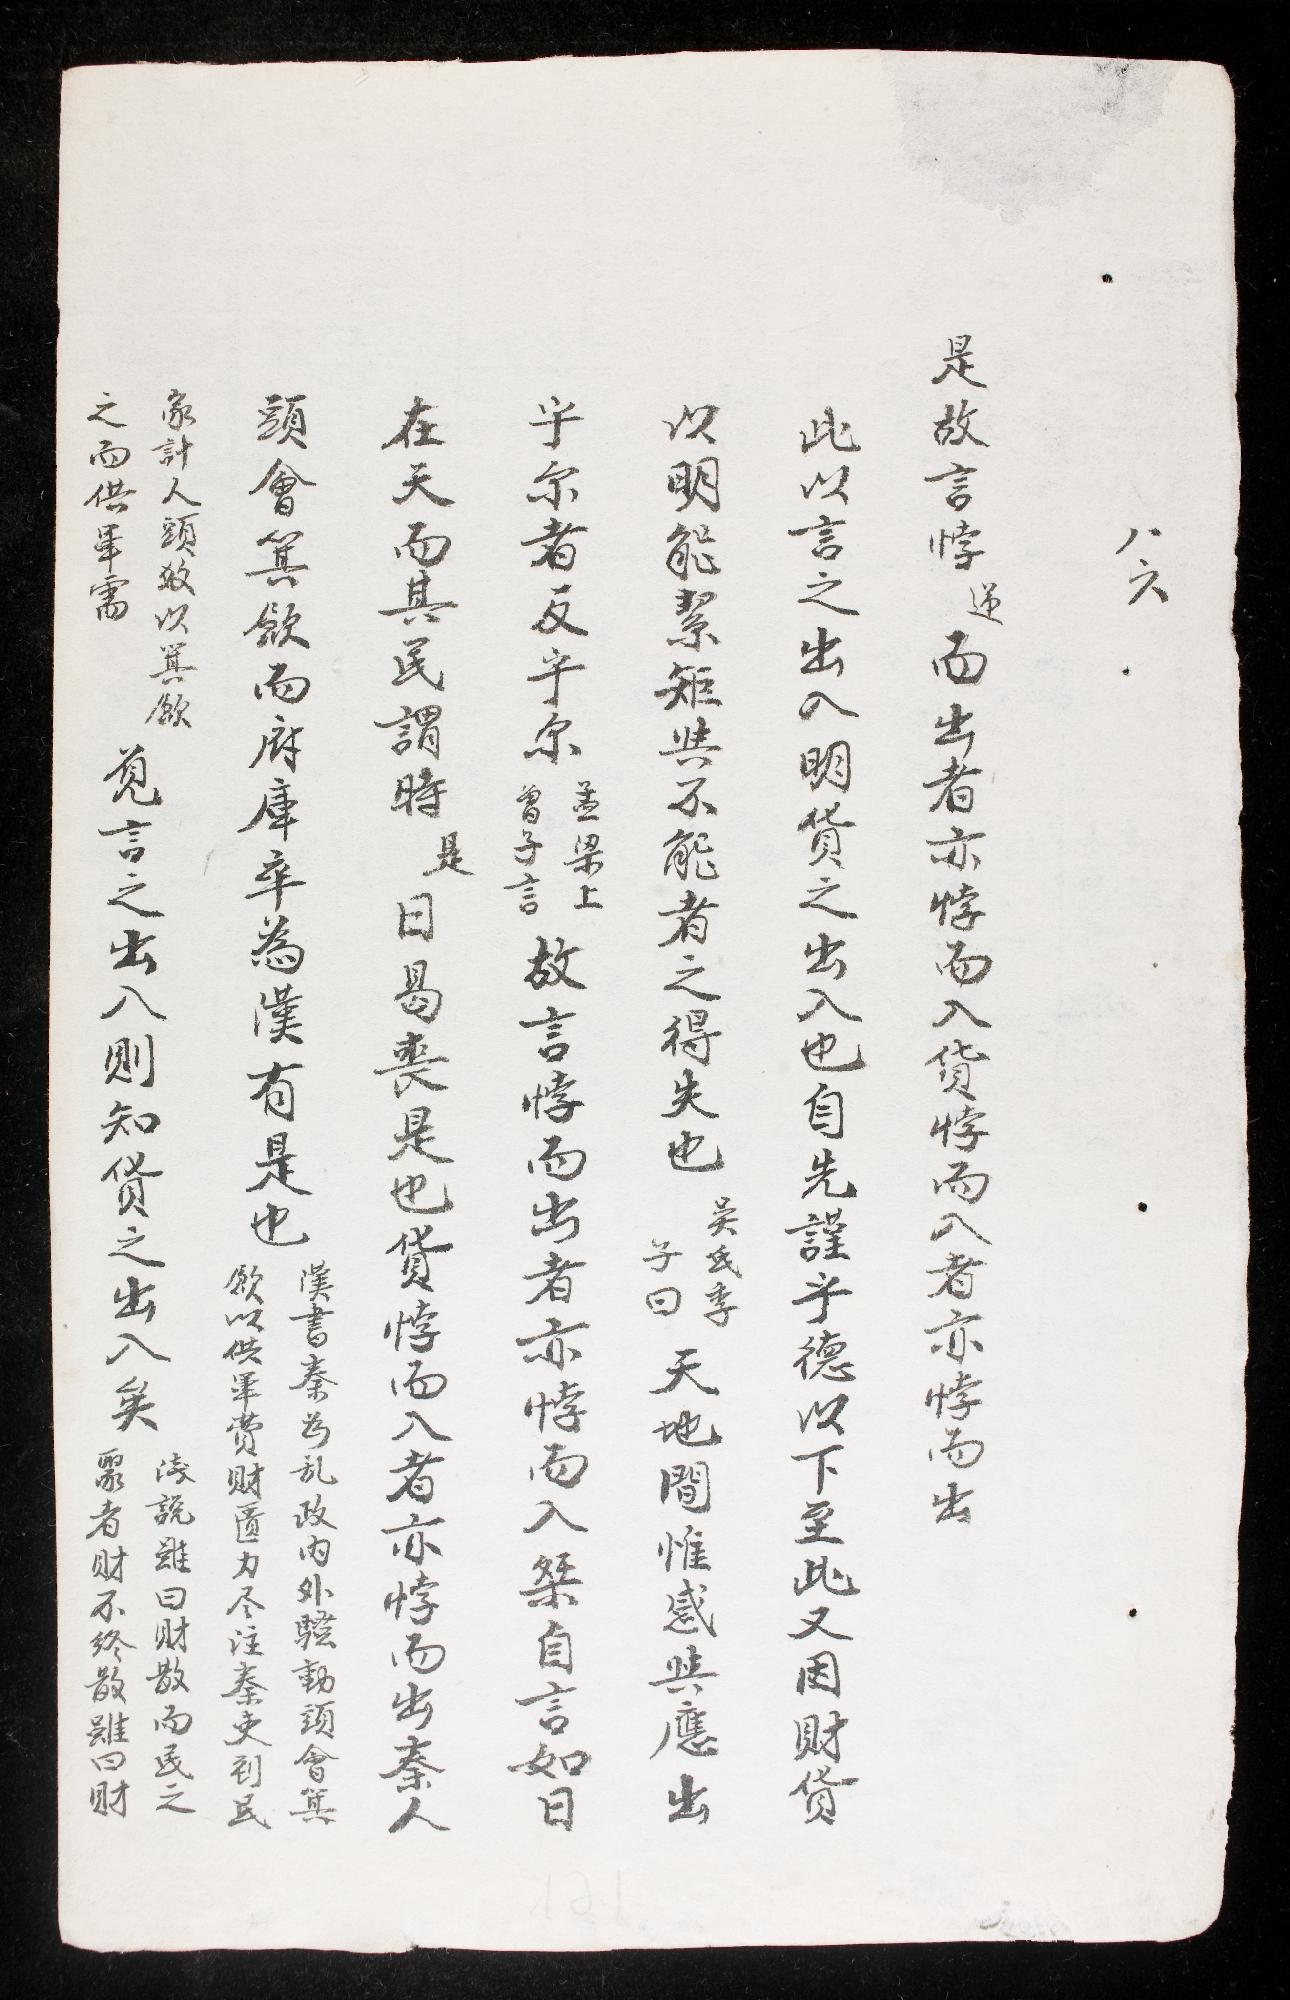 八六
是故言悖逆而出者亦悖而入貨悖而入者亦悖而出
此以言之出入明貨之出入也自先謹乎德以下至此又因財貨
以明能絜矩與不能者之得失也吳氏季子曰天地間惟感與應出
乎尔者反乎尔孟梁上曾子言故言悖而出者亦悖而入桀自言如日
在天而其民謂時是日曷喪是也貨悖而入者亦悖而出秦人
頭會箕斂而府庫卒為漢有是也漢書秦為乱政內外騷動頭會箕斂以供軍費財匱力尽注秦吏到民
家計人頭數以箕斂之而供軍需覓言之出入則知貨之出入矣淺說雖曰財散而民之聚者財不終散雖曰財